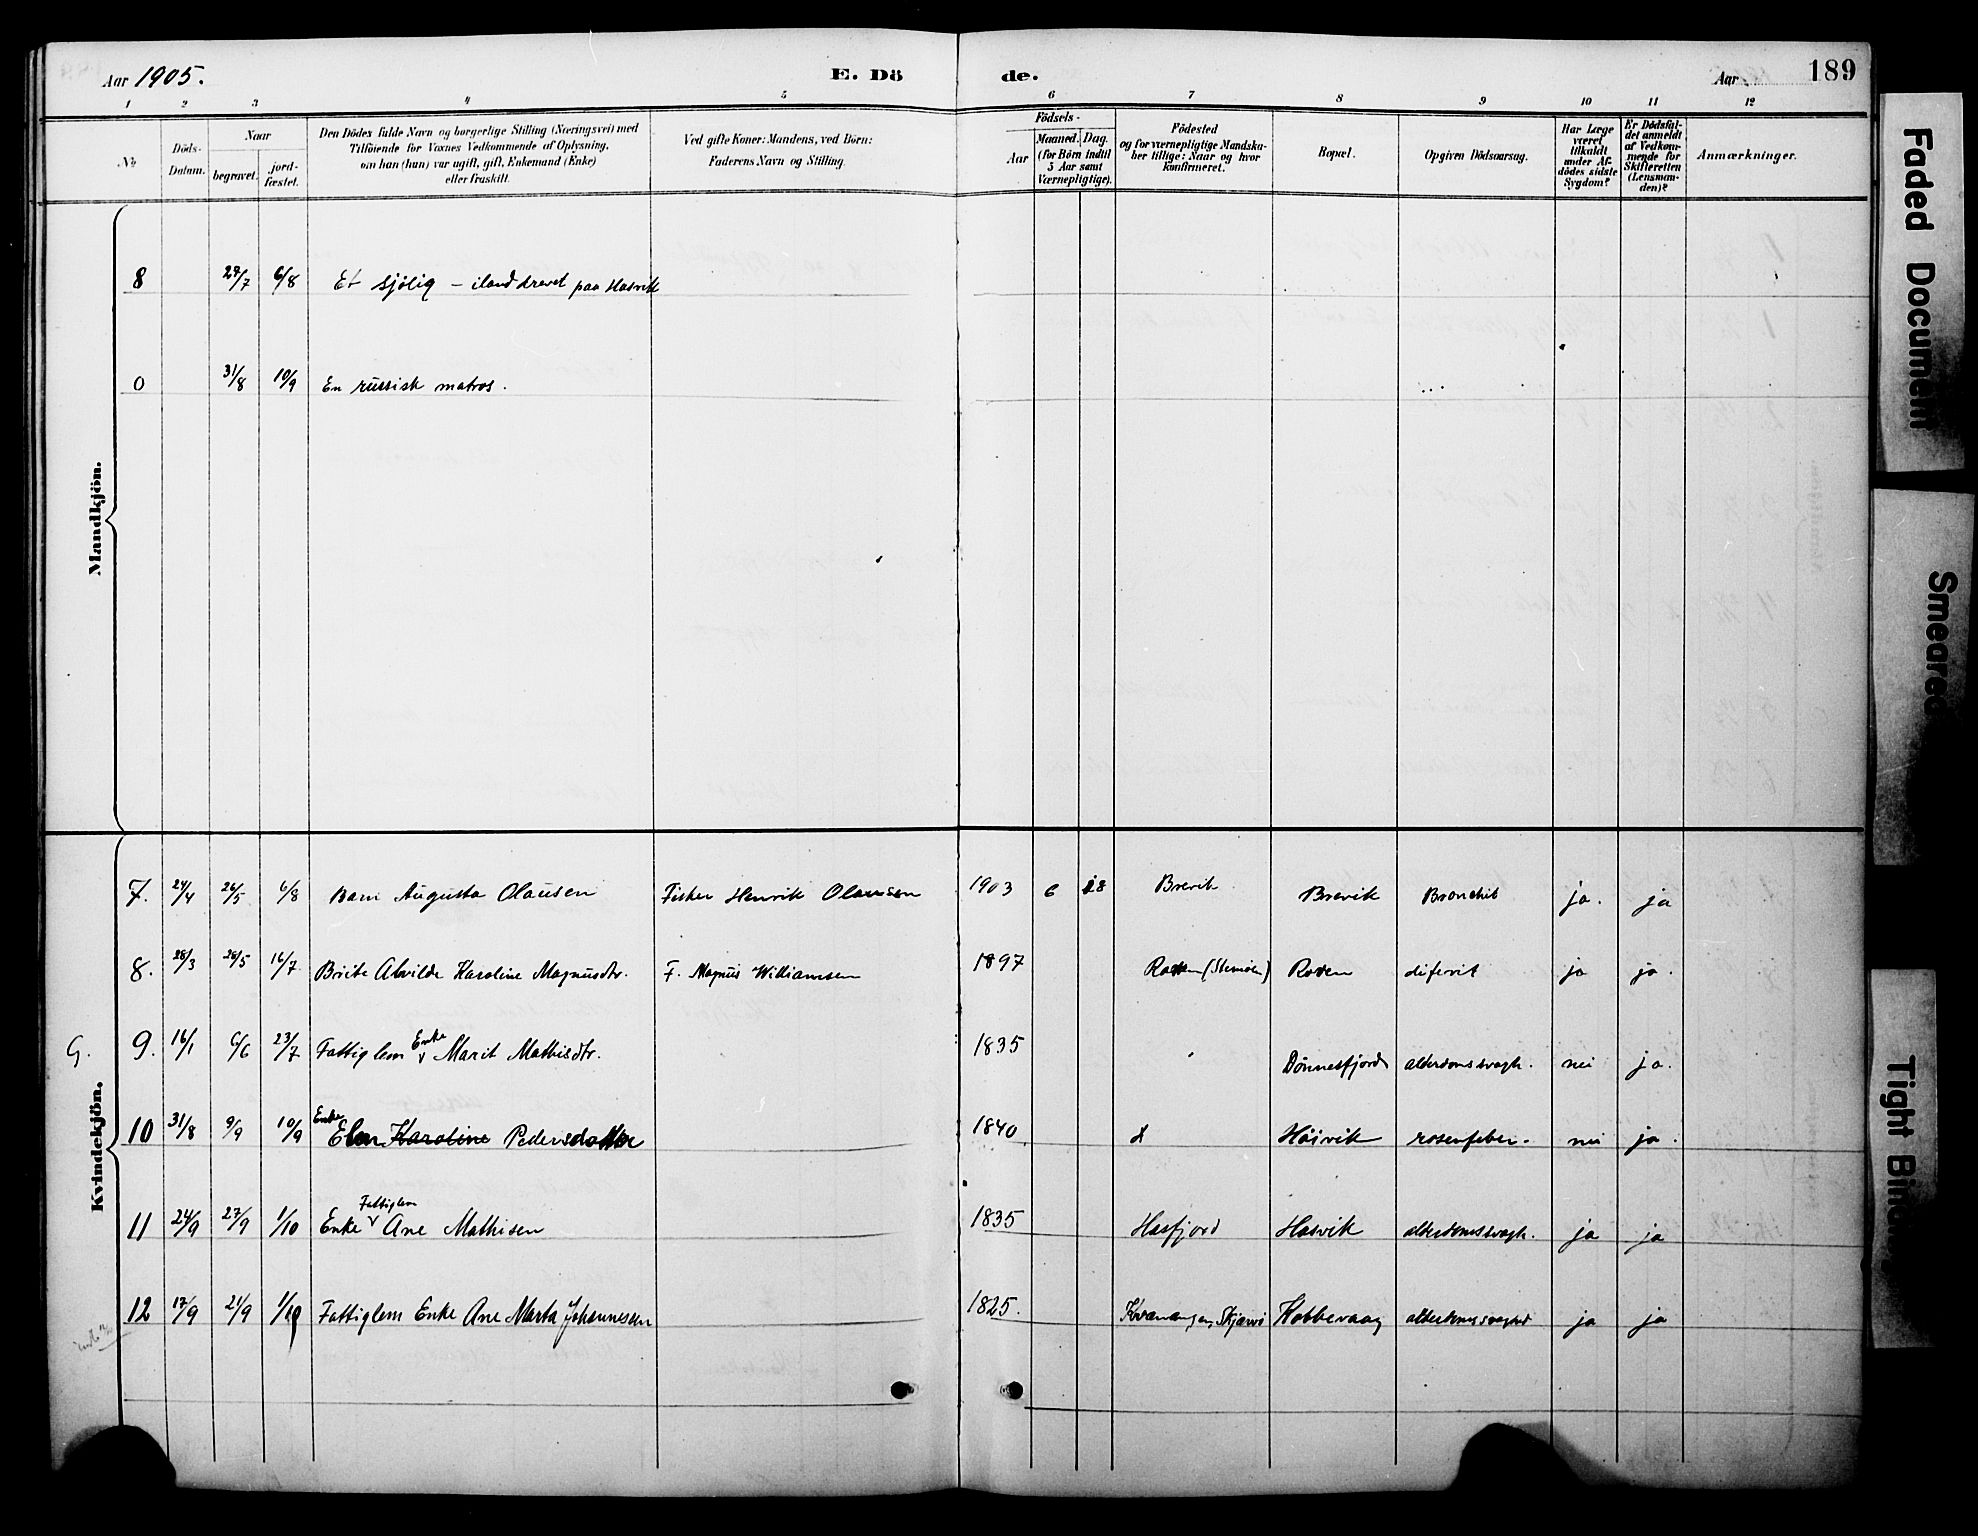 Aar 1905. E. Dö de. Aar 189
1 2 3 4 5 6 7 8 9 10 11 12
No. Döds-Datum. Naar begravet. jordfæstet. Den Dödes fulde Navn og borgerlige Stilling (Næringsvei) med Tilföiende for Voxnes Vedkommende af Oplysning, om han (hun) var ugift, gift, Enkemand (Enke) eller fraskilt. Ved gifte Koner: Mandens, ved Börn: Faderens Navn og Stilling. Födsels- Aar Maaned. Dag. (for Börn indtil 5 Aar samt Værnepligtige). Födested og for værnepligtige Mandskaber tillige: Naar og hvor konfirmeret. Bopæl. Opgiven Dödsaarsag. Har Læge været tilkaldt under Afdödes sidste Sygdom? Er Dödsfaldet anmeldt af Vedkommende for Skifteretten (Lensmanden)? Anmærkninger.
Mandkjön.
8 27/7 6/8 Et sjölig – ilanddrevet paa Hasvik
0 31/8 10/9 En russisk matros.
Kvindekjön.
7. 24/4 26/5 6/8 Barn Augusta Olausen Fisker Henrik Olaussen 1903 6 18 Brevik Brevik Bronchit ja. ja
8. 28/3 28/5 16/7 Karoline Magnusdtr. F. Magnus Williamsen 1897 difterit ja ja.
G. 9. 16/1 6/6 23/7 Fattiglem Enke Marit Mathisdtr. 1835 Dönnesfjord alderdomssvagh. nei ja.
10 31/8 9/9 10/9 Enke Elen Karoline Pedersdatter 1840 Höivik rosenfeber. nei ja.
11 24/9 27/9 1/10 Enke Fattiglem Ane Mathisen 1835 Hasfjord Hasvik alderdomssvagh. ja ja
12 17/9 21/9 1/10 Fattiglem Enke Ane Marta Johannesen 1825. Kvænangen, Skjærvö Kobbevaag alderdomssvaghed ja ja
Faded Document
Smeared
Tight Bind